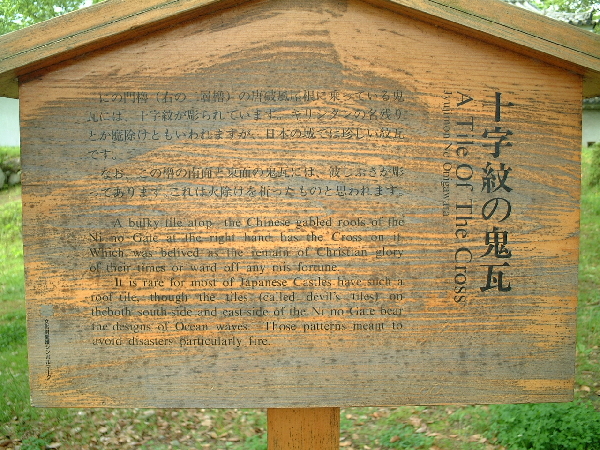 十字紋の鬼瓦
Jyujimon No Onigawara
A Tile Of The Cross
にの門櫓（右の二層櫓）の唐破風屋根に乗っている鬼
瓦には、十字紋が彫られています。キリシタンの名残り
とか魔除けともいわれますが、日本の城では珍しい紋瓦
です。
なお、この櫓の南面と東面の鬼瓦には、波しぶきが彫
ってあります。これは火除けを祈ったものと思われます。
A bulky tile atop the Chinese gabled roofs of the
Ni no Gate at the right hand has the Cross on it.
Which was belived as the remain of Christian glory
of their times or ward off any mis fortune.
It is rare for most of Japanese Castles have such a
roof tile, though the tiles (called devil's tiles) on
theboth south-side and east-side of the Ni no Gate bear
the designs of Ocean waves. Those patterns meant to
avoid disasters particularly fire.